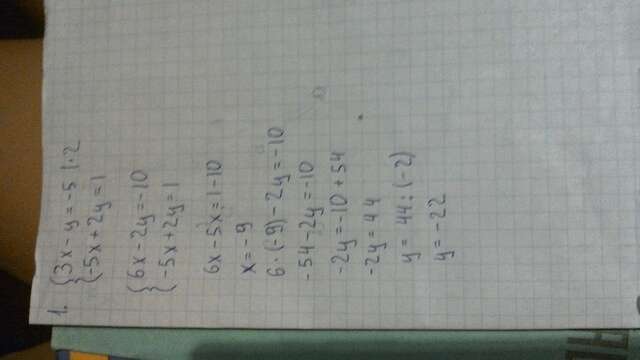 1. {3x - y = -5 | · 2
{-5x + 2y = 1
{6x - 2y = -10
{-5x + 2y = 1
6x - 5x = 1 - 10
x = -9
6 · (-9) - 2y = -10
-54 - 2y = -10
-2y = -10 + 54
-2y = 44
y = 44 : (-2)
y = -22